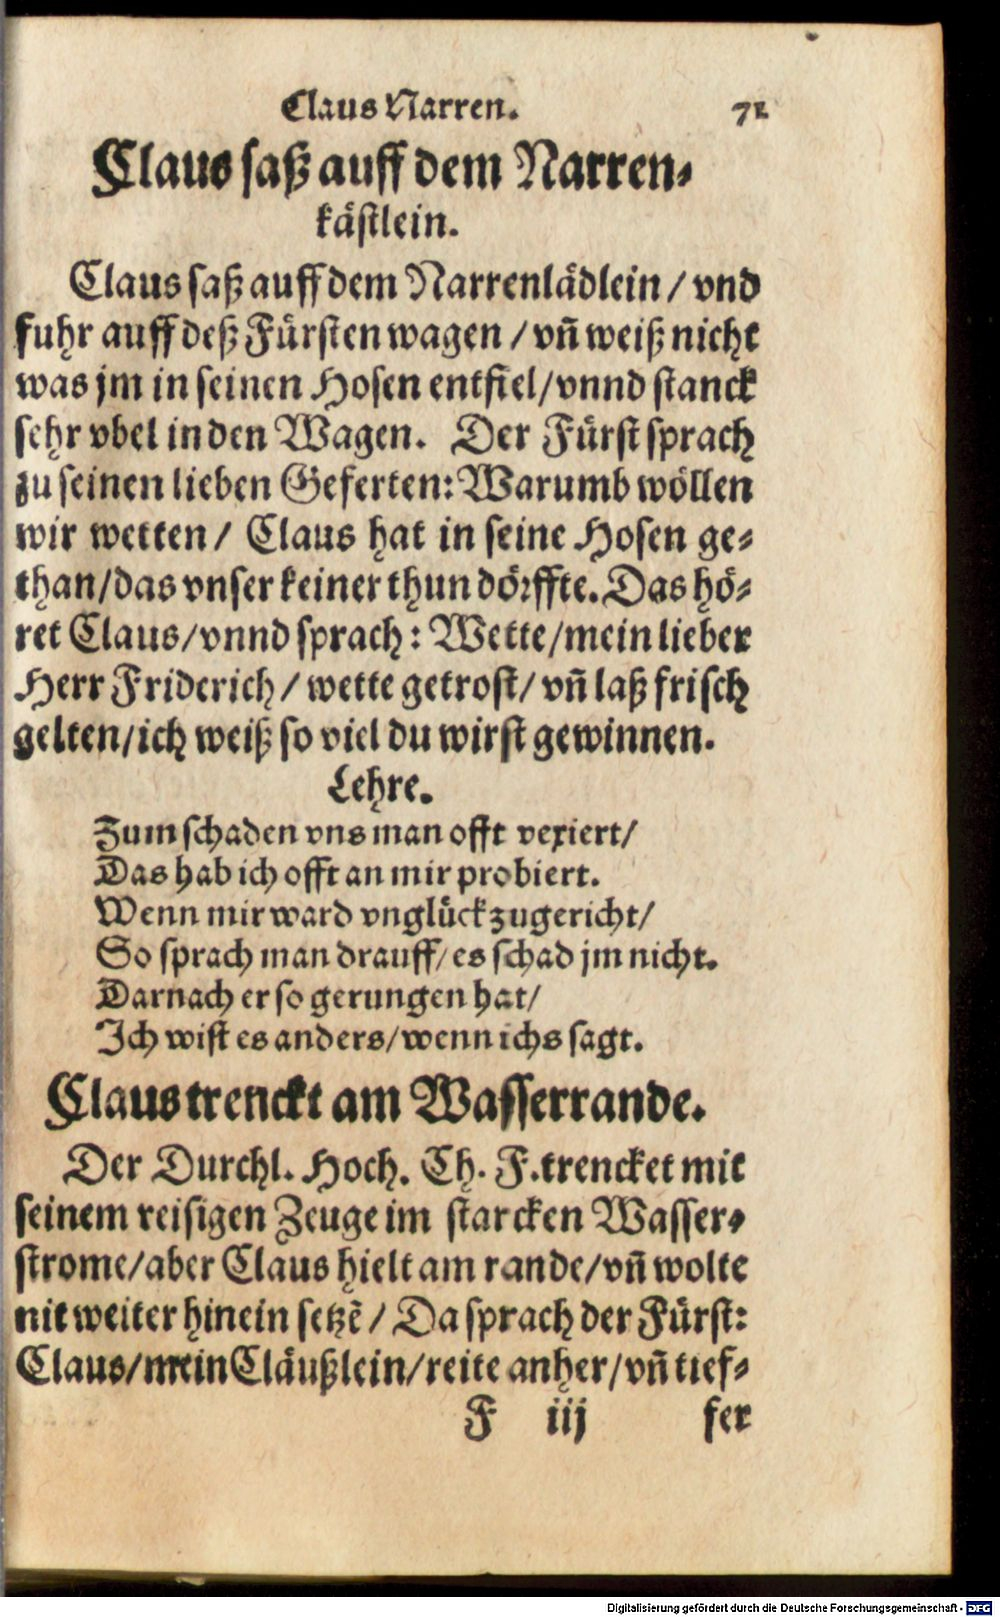 Claus Narren. 71
Claus saß auff dem Narren-
kästlein.
Claus saß auff dem Narrenlädlein / vnd
fuhr auff deß Fürsten wagen / vñ weiß nicht
was jm in seinen Hosen entfiel / vnnd stanck
sehr vbel in den Wagen. Der Fürst sprach
zu seinen lieben Geferten: Warumb wöllen
wir wetten / Claus hat in seine Hosen ge-
than / das vnser keiner thun dörffte. Das hö-
ret Claus / vnnd sprach: Wette / mein lieber
Herr Friderich / wette getrost / vñ laß frisch
gelten / ich weiß so viel du wirst gewinnen.
Lehre.
Zum schaden vns man offt vexiert /
Das hab ich offt an mir probiert.
Wenn mir ward vnglück zugericht /
So sprach man drauff / es schad jm nicht.
Darnach er so gerungen hat /
Ich wist es anders / wenn ichs sagt.
Claus trenckt am Wasserrande.
Der Durchl. Hoch. Ch. F. trencket mit
seinem reisigen Zeuge im starcken Wasser-
strome / aber Claus hielt am rande / vñ wolte
nit weiter hinein setzẽ / Da sprach der Fürst:
Claus / mein Cläußlein / reite anher / vñ tief-
F iij fer
Digitalisierung gefördert durch die Deutsche Forschungsgemeinschaft - DFG